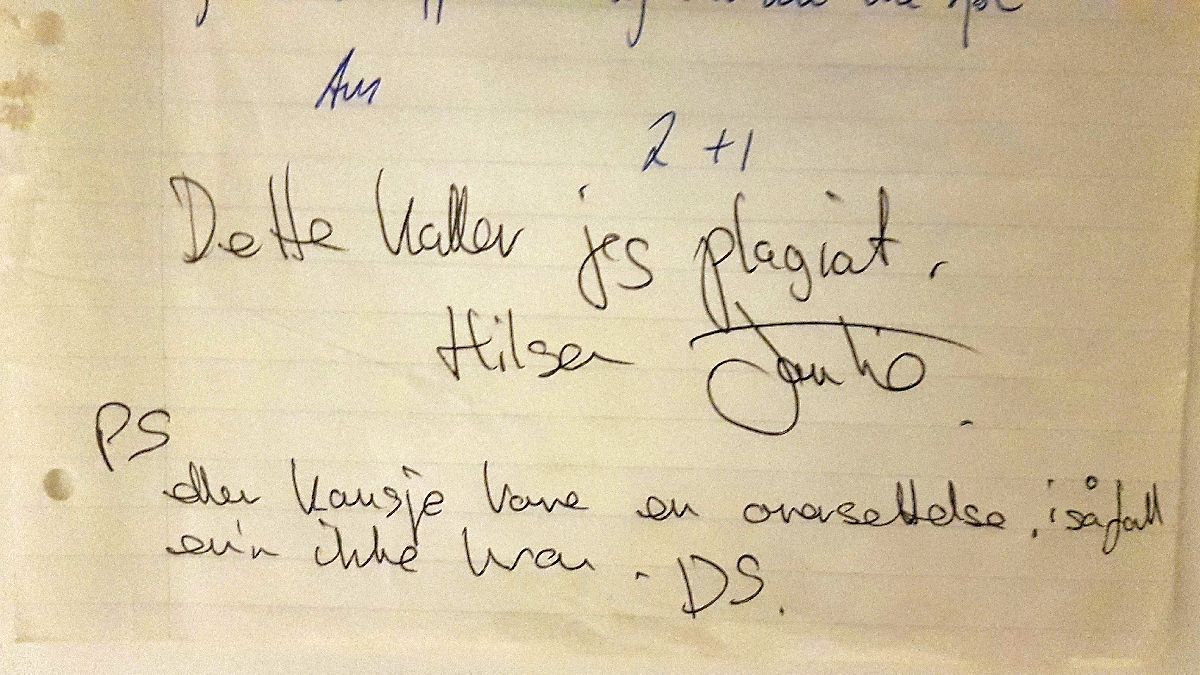 Am
2 +1
Dette kaller jeg plagiat.
Hilsen
PS
eller kansje bare en oversettelse, isåfall
er'n ikke bra. DS.